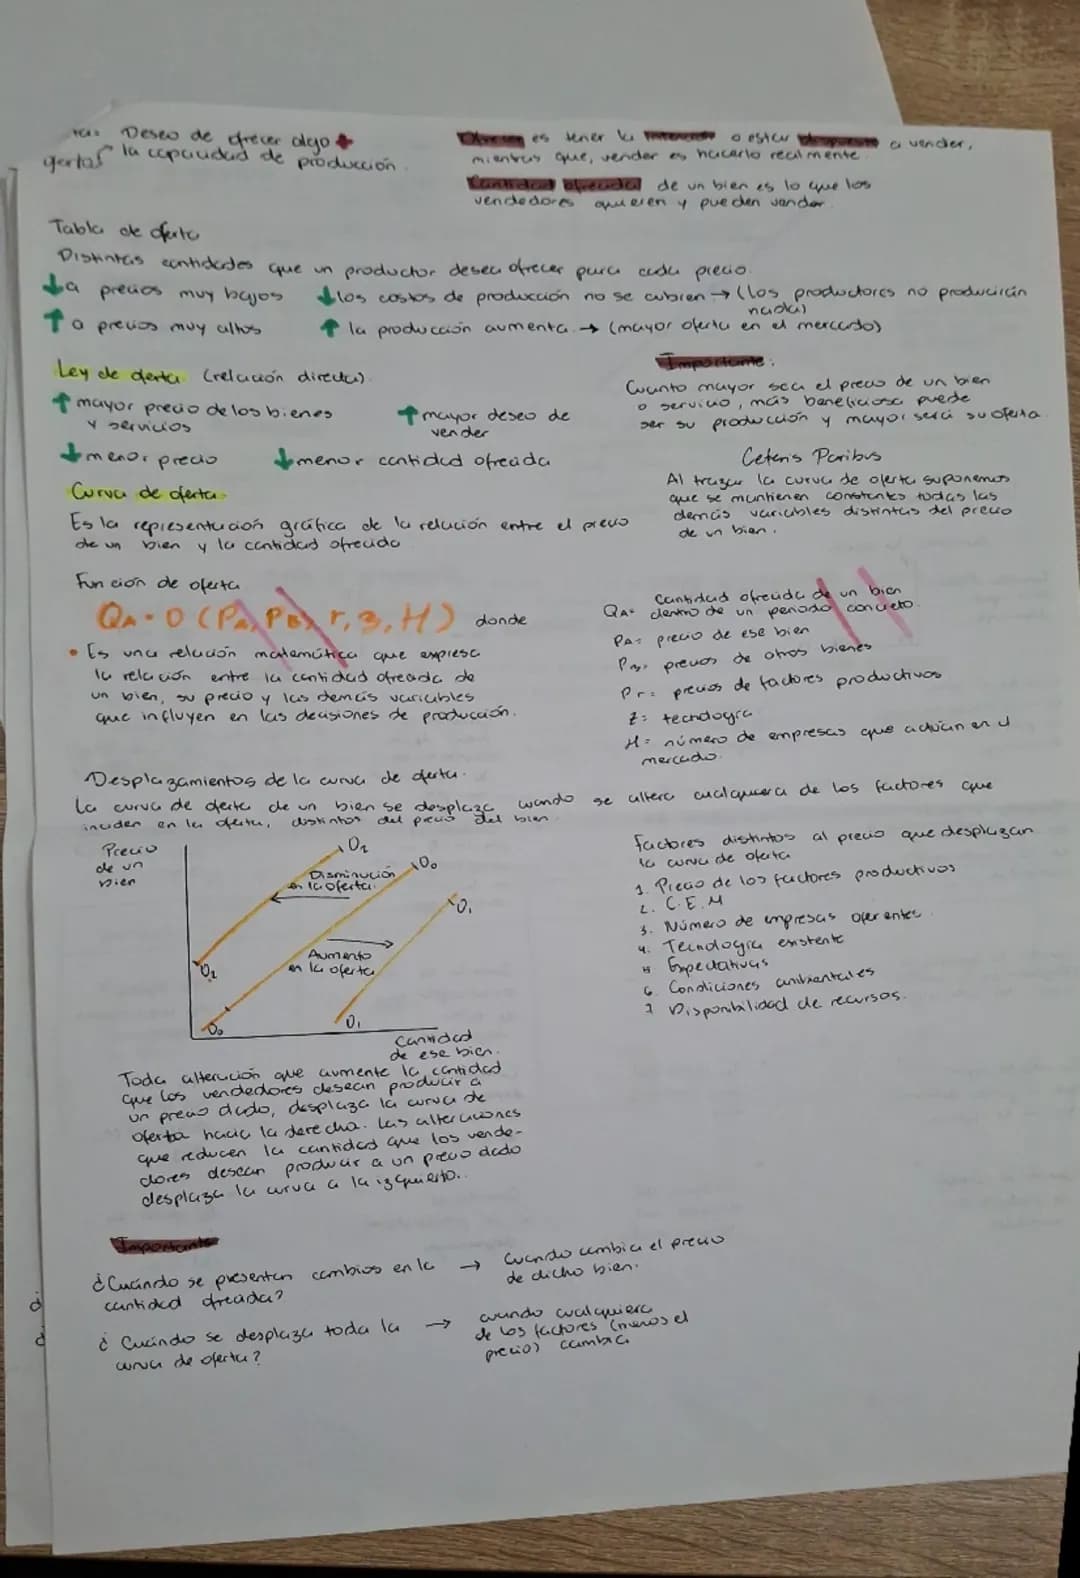 Deseo de ofrecer algo +
ofertar la capacidad de producción.
Ofrecer es tener la intención o estar dispuesto a vender,
mientras que, vender es hacerlo realmente.
Cantidad ofrecida de un bien es lo que los
vendedores quieren y pueden vender
Tabla de oferta
Distintas cantidades que un productor desea ofrecer para cada precio.
↓a precios muy bajos ↓los costos de producción no se cubren → (los productores no producirán
nada)
↑a precios muy altos ↑ la producción aumenta. → (mayor oferta en el mercado)
Ley de oferta (relación directa).
↑mayor precio de los bienes
y servicios
↑mayor deseo de
vender
↓menor precio ↓menor cantidad ofrecida
Importante:
Cuanto mayor sea el precio de un bien
o servicio, más beneficiosa puede
ser su producción y mayor será su oferta.
Curva de oferta.
Es la representación gráfica de la relación entre el precio
de un bien y la cantidad ofrecida
Ceteris Paribus
Al trazar la curva de oferta suponemos
que se mantienen constantes todas las
demás variables distintas del precio
de un bien.
Función de oferta
QA = O (PA, PB, r, z, H) donde
• Es una relación matemática que expresa
la relación entre la cantidad ofrecida de
un bien, su precio y las demás variables
que influyen en las decisiones de producción.
QA= Cantidad ofrecida de un bien
dentro de un periodo concreto.
PA= precio de ese bien
PB= precios de otros bienes
Pr= precios de factores productivos
Z= tecnología
H= número de empresas que actúan en el
mercado.
Desplazamientos de la curva de oferta.
La curva de oferta de un bien se desplaza cuando se altera cualquiera de los factores que
inciden en la oferta, distintos del precio del bien
Precio
de un
bien
O2
Disminución
en la oferta.
O0
O1
Aumento
en la oferta
O2
O0
O1
Cantidad
de ese bien.
Factores distintos al precio que desplazan
la curva de oferta
1. Precio de los factores productivos
2. C.E.M
3. Número de empresas oferentes.
4. Tecnología existente
5 Expectativas
6. Condiciones ambientales
7 Disponibilidad de recursos.
Toda alteración que aumente la cantidad
que los vendedores desean producir a
un precio dado, desplaza la curva de
oferta hacia la derecha. Las alteraciones
que reducen la cantidad que los vende-
dores desean producir a un precio dado
desplaza la curva a la izquierda..
Importante
¿Cuándo se presentan cambios en la → Cuando cambia el precio
cantidad ofrecida? de dicho bien.
¿Cuándo se desplaza toda la → cuando cualquiera
curva de oferta? de los factores (menos el
precio) cambia